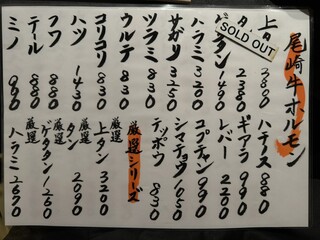 尾崎牛ホルモン
SOLD OUT
上タ 2800
タ 2380
タン 1400
ハラミ 3200
サガリ 3250
ツラミ 830
ウルテ 830
コリコリ 830
ハツ 1430
フワ 880
テール 880
ミノ 990
ハチノス 880
ギアラ 990
レバー 2200
コプチャン 990
シマチョウ 1050
テッポウ 830
厳選シリーズ
厳選 上タン 3200
厳選 タン 2090
厳選 ゲタタン 1250
厳選 ハラミ 2670